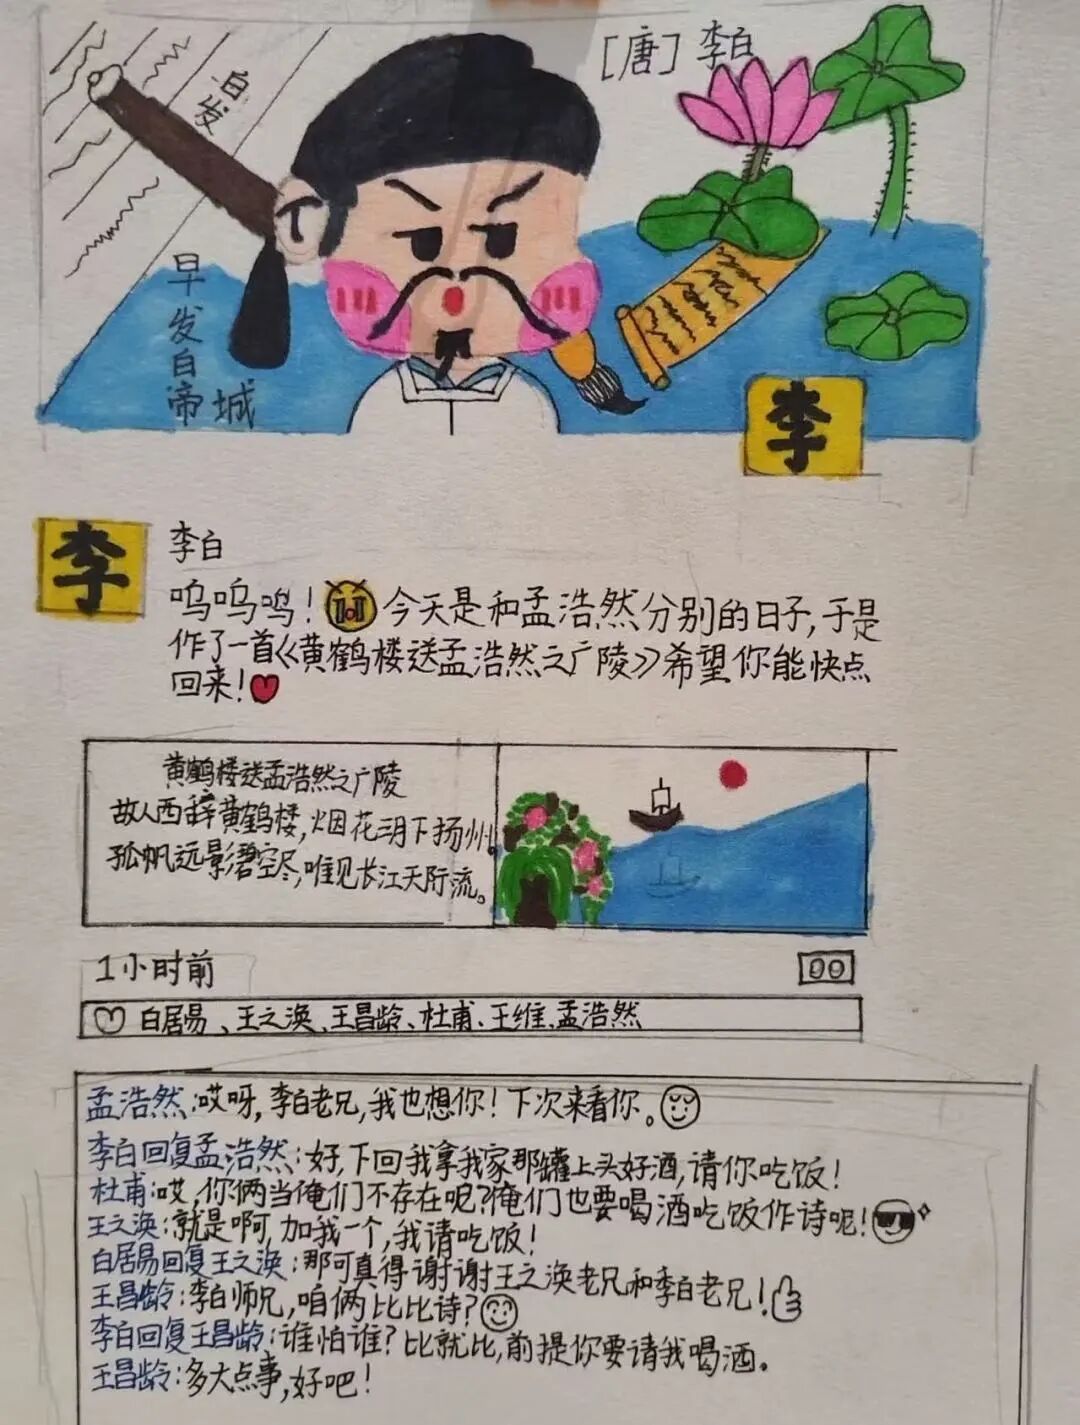 [唐]李白
白发
早发白帝城
李
李
李白
呜呜呜!今天是和孟浩然分别的日子,于是
作了一首《黄鹤楼送孟浩然之广陵》希望你能快点
回来!
黄鹤楼送孟浩然之广陵
故人西辞黄鹤楼,烟花三月下扬州。
孤帆远影碧空尽,唯见长江天际流。
1小时前
白居易、王之涣、王昌龄、杜甫、王维、孟浩然
孟浩然:哎呀,李白老兄,我也想你!下次来看你。
李白回复孟浩然:好,下回我拿我家那罐上头好酒,请你吃饭!
杜甫:哎,你俩当俺们不存在呢?俺们也要喝酒吃饭作诗呢!
王之涣:就是啊,加我一个,我请吃饭!
白居易回复王之涣:那可真得谢谢王之涣老兄和李白老兄!
王昌龄:李白师兄,咱俩比比诗?
李白回复王昌龄:谁怕谁?比就比,前提你要请我喝酒。
王昌龄:多大点事,好吧!